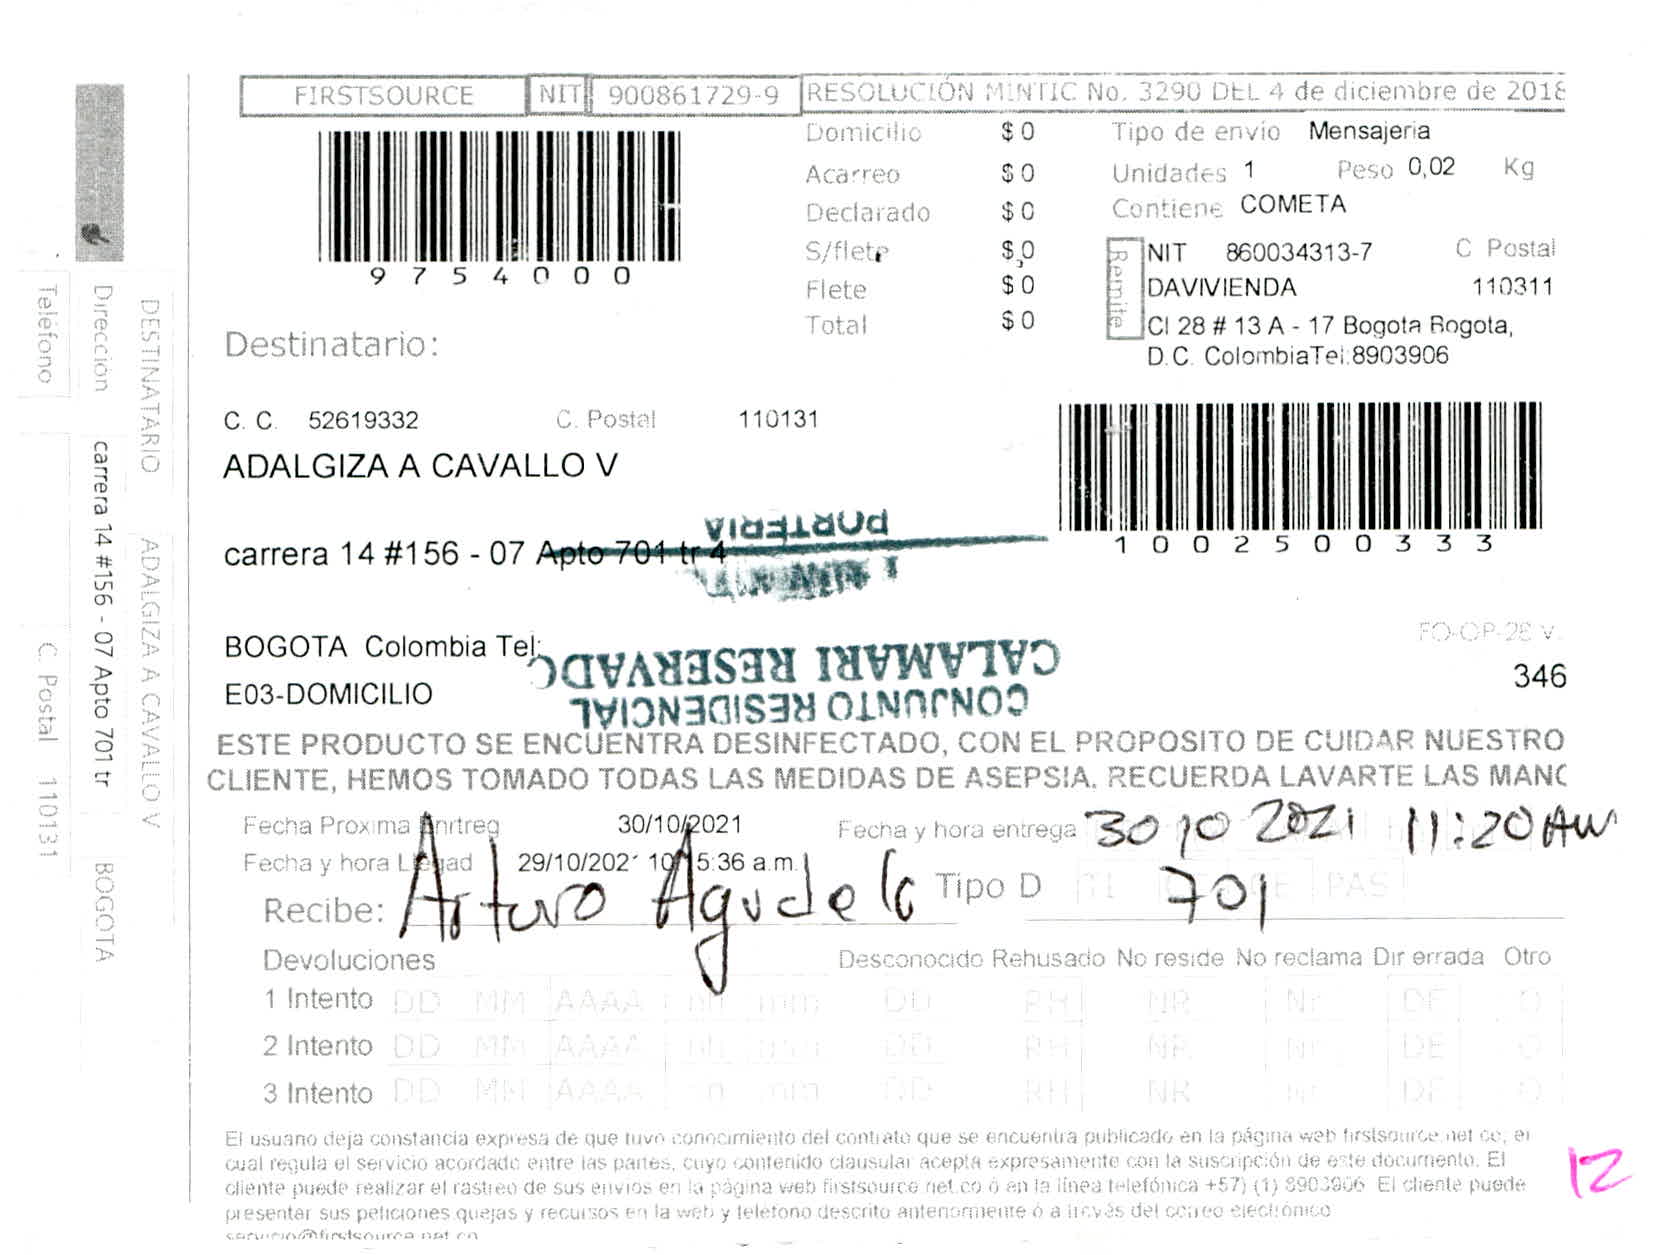 FIRSTSOURCE NIT 900861729-9 RESOLUCIÓN MINTIC No. 3290 DEL 4 de diciembre de 2018
9754000
Domicilio $ 0
Acarreo $ 0
Declarado $ 0
S/flete $ 0
Flete $ 0
Total $ 0
Tipo de envío Mensajeria
Unidades 1 Peso 0,02 Kg
Contiene COMETA
Remite
NIT 860034313-7 C Postal
DAVIVIENDA 110311
Cl 28 # 13 A - 17 Bogota Bogota,
D.C. ColombiaTel:8903906
Destinatario:
C. C. 52619332 C. Postal 110131
ADALGIZA A CAVALLO V
carrera 14 #156 - 07 Apto 701 tr 4
1002500333
BOGOTA Colombia Tel:
E03-DOMICILIO
FO-OP-28 V.
346
CONJUNTO RESIDENCIAL
CALAMARI RESERVADO
PORTERIA
ESTE PRODUCTO SE ENCUENTRA DESINFECTADO, CON EL PROPOSITO DE CUIDAR NUESTRO
CLIENTE, HEMOS TOMADO TODAS LAS MEDIDAS DE ASEPSIA. RECUERDA LAVARTE LAS MANO
Fecha Proxima Enitreg 30/10/2021 Fecha y hora entrega 30 10 2021 11:20 AM
Fecha y hora Llegad 29/10/2021 10 5:36 a.m.
Recibe: Arturo Agudelo Tipo D 701 PAS
Devoluciones Desconocido Rehusado No reside No reclama Dir errada Otro
1 Intento DD MM AAAA hh mm DD RH NR Nr DE O
2 Intento DD MM AAAA hh mm DD RH NR Nr DE O
3 Intento DD MM AAAA hh mm DD RH NR Nr DE O
El usuario deja constancia expresa de que tuvo conocimiento del contrato que se encuentra publicado en la página web firstsource.net.co, el
cual regula el servicio acordado entre las partes, cuyo contenido clausular acepta expresamente con la suscripción de este documento. El
cliente puede realizar el rastreo de sus envios en la página web firstsource.net.co ó en la línea telefónica +57) (1) 8903906 El cliente puede
presentar sus peticiones quejas y recursos en la web y teléfono descrito anteriormente ó a través del correo electrónico
servicio@firstsource.net.co
12
DESTINATARIO ADALGIZA A CAVALLO V
Dirección carrera 14 #156 - 07 Apto 701 tr BOGOTA
Teléfono C. Postal 110131